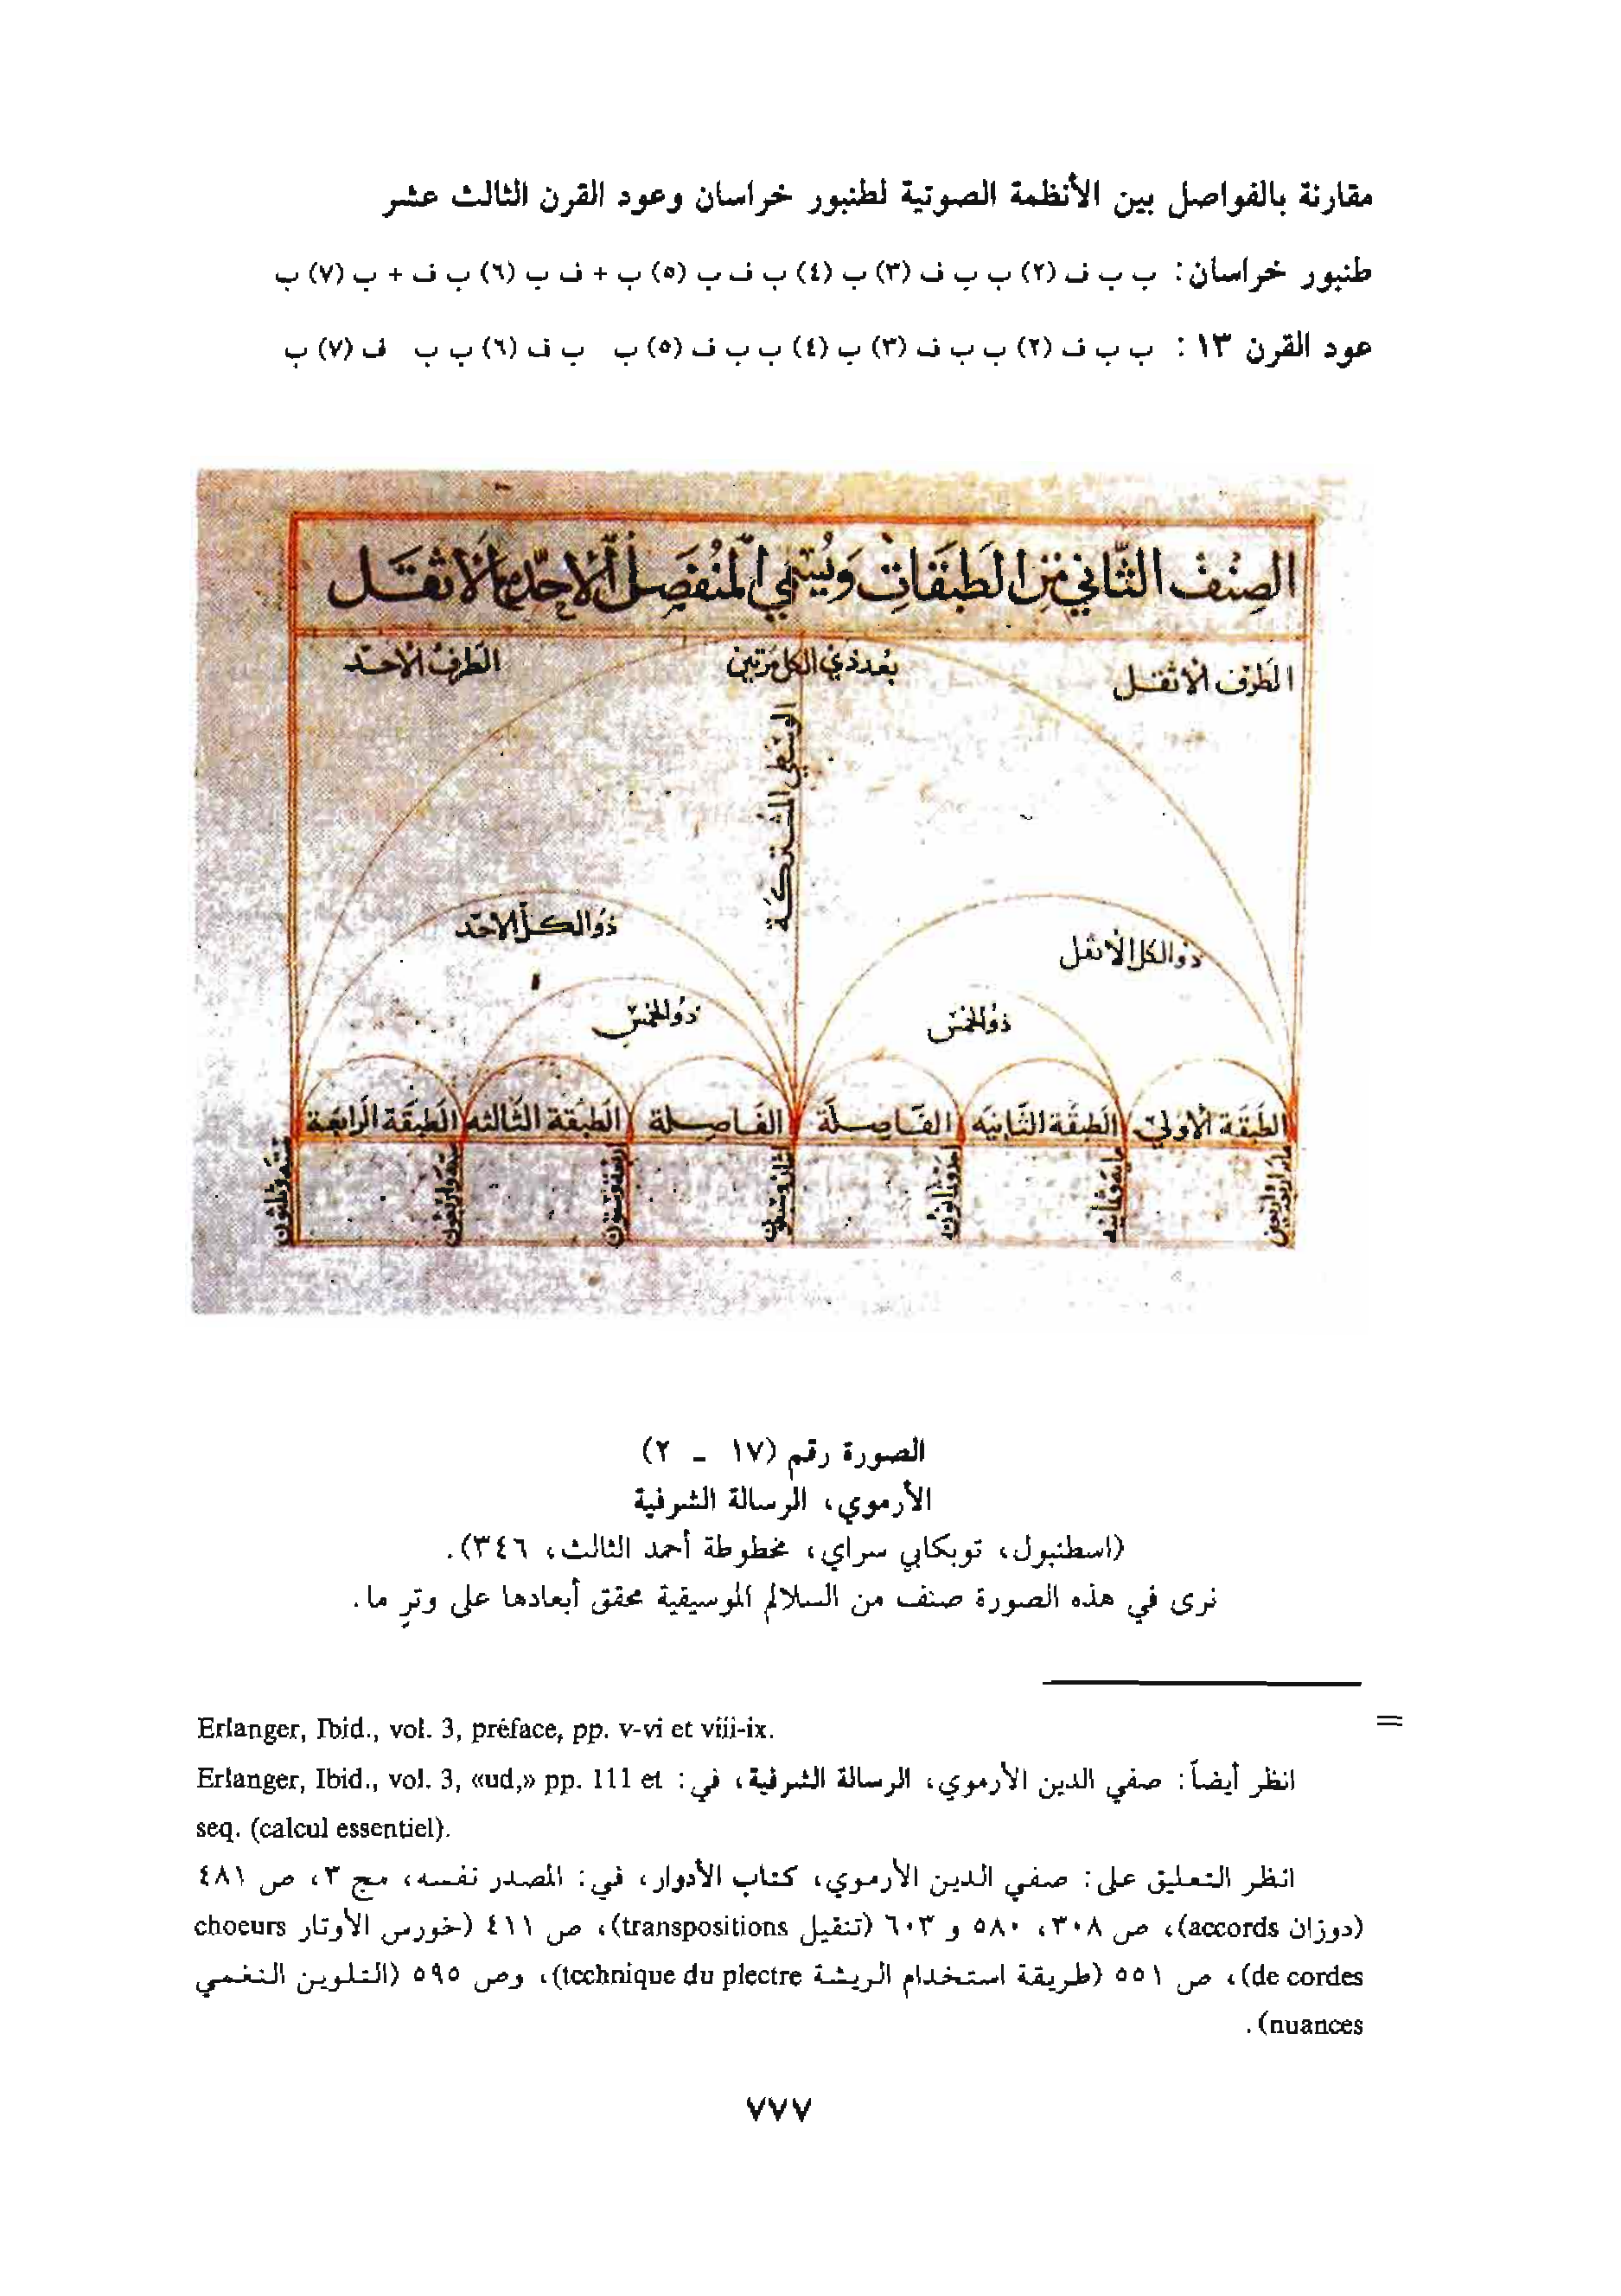 مقارنة بالفواصل بين الأنظمة الصوتية لطنبور خراسان وعود القرن الثالث عشر
طنبور خراسان: ب ب ف (٢) ب ب ف (٣) ب (٤) ب ف ب (٥) ب + ف ب (٦) ب ف + ب (٧) ب
عود القرن ١٣ : ب ب ف (٢) ب ب ف (٣) ب (٤) ب ب ف (٥) ب ب ف (٦) ب ب ف (٧) ب
الصنف الثاني من الطبقات ويسمي المنفصل الاحد والاثقل
الطرف الاثقل
بعد ذي الكل مرتين
الطرف الاحد
الوسطي المشتركة
ذو الكل الاثقل
ذو الكل الاحد
ذو الخمس
ذو الخمس
الطبقة الاولي
الطبقة الثانيه
الفاصلة
الفاصلة
الطبقة الثالثه
الطبقة الرابعة
مايه وثمانيه
احد وثمانون
اثنان وسبعون
سته وثلثون
الصورة رقم (١٧ - ٢)
الأرموي، الرسالة الشرفية
(اسطنبول، توبكابي سراي، مخطوطة أحمد الثالث، ٣٤٦).
نرى في هذه الصورة صنف من السلالم الموسيقية محقق أبعادها على وترٍ ما.
=
Erlanger, Ibid., vol. 3, préface, pp. v-vi et viii-ix.
انظر أيضاً: صفي الدين الأرموي، الرسالة الشرفية، في: Erlanger, Ibid., vol. 3, «ud,» pp. 111 et
seq. (calcul essentiel).
انظر التعليق على: صفي الدين الأرموي، كتاب الأدوار، في: المصدر نفسه، مج ٣، ص ٤٨١
(دوزان accords)، ص ٣٠٨، ٥٨٠ و ٦٠٣ (تنقيل transpositions)، ص ٤١١ (خورس الأوتار choeurs
de cordes)، ص ٥٥١ (طريقة استخدام الريشة technique du plectre)، وص ٥٩٥ (التلوين النغمي
nuances).
٧٧٧